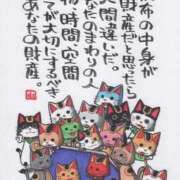 布の中身が
財産だと思ったら
大間違いだ。
なたのまわりの人
物、時間、空間
てが大切にするべき
あなたの財産。